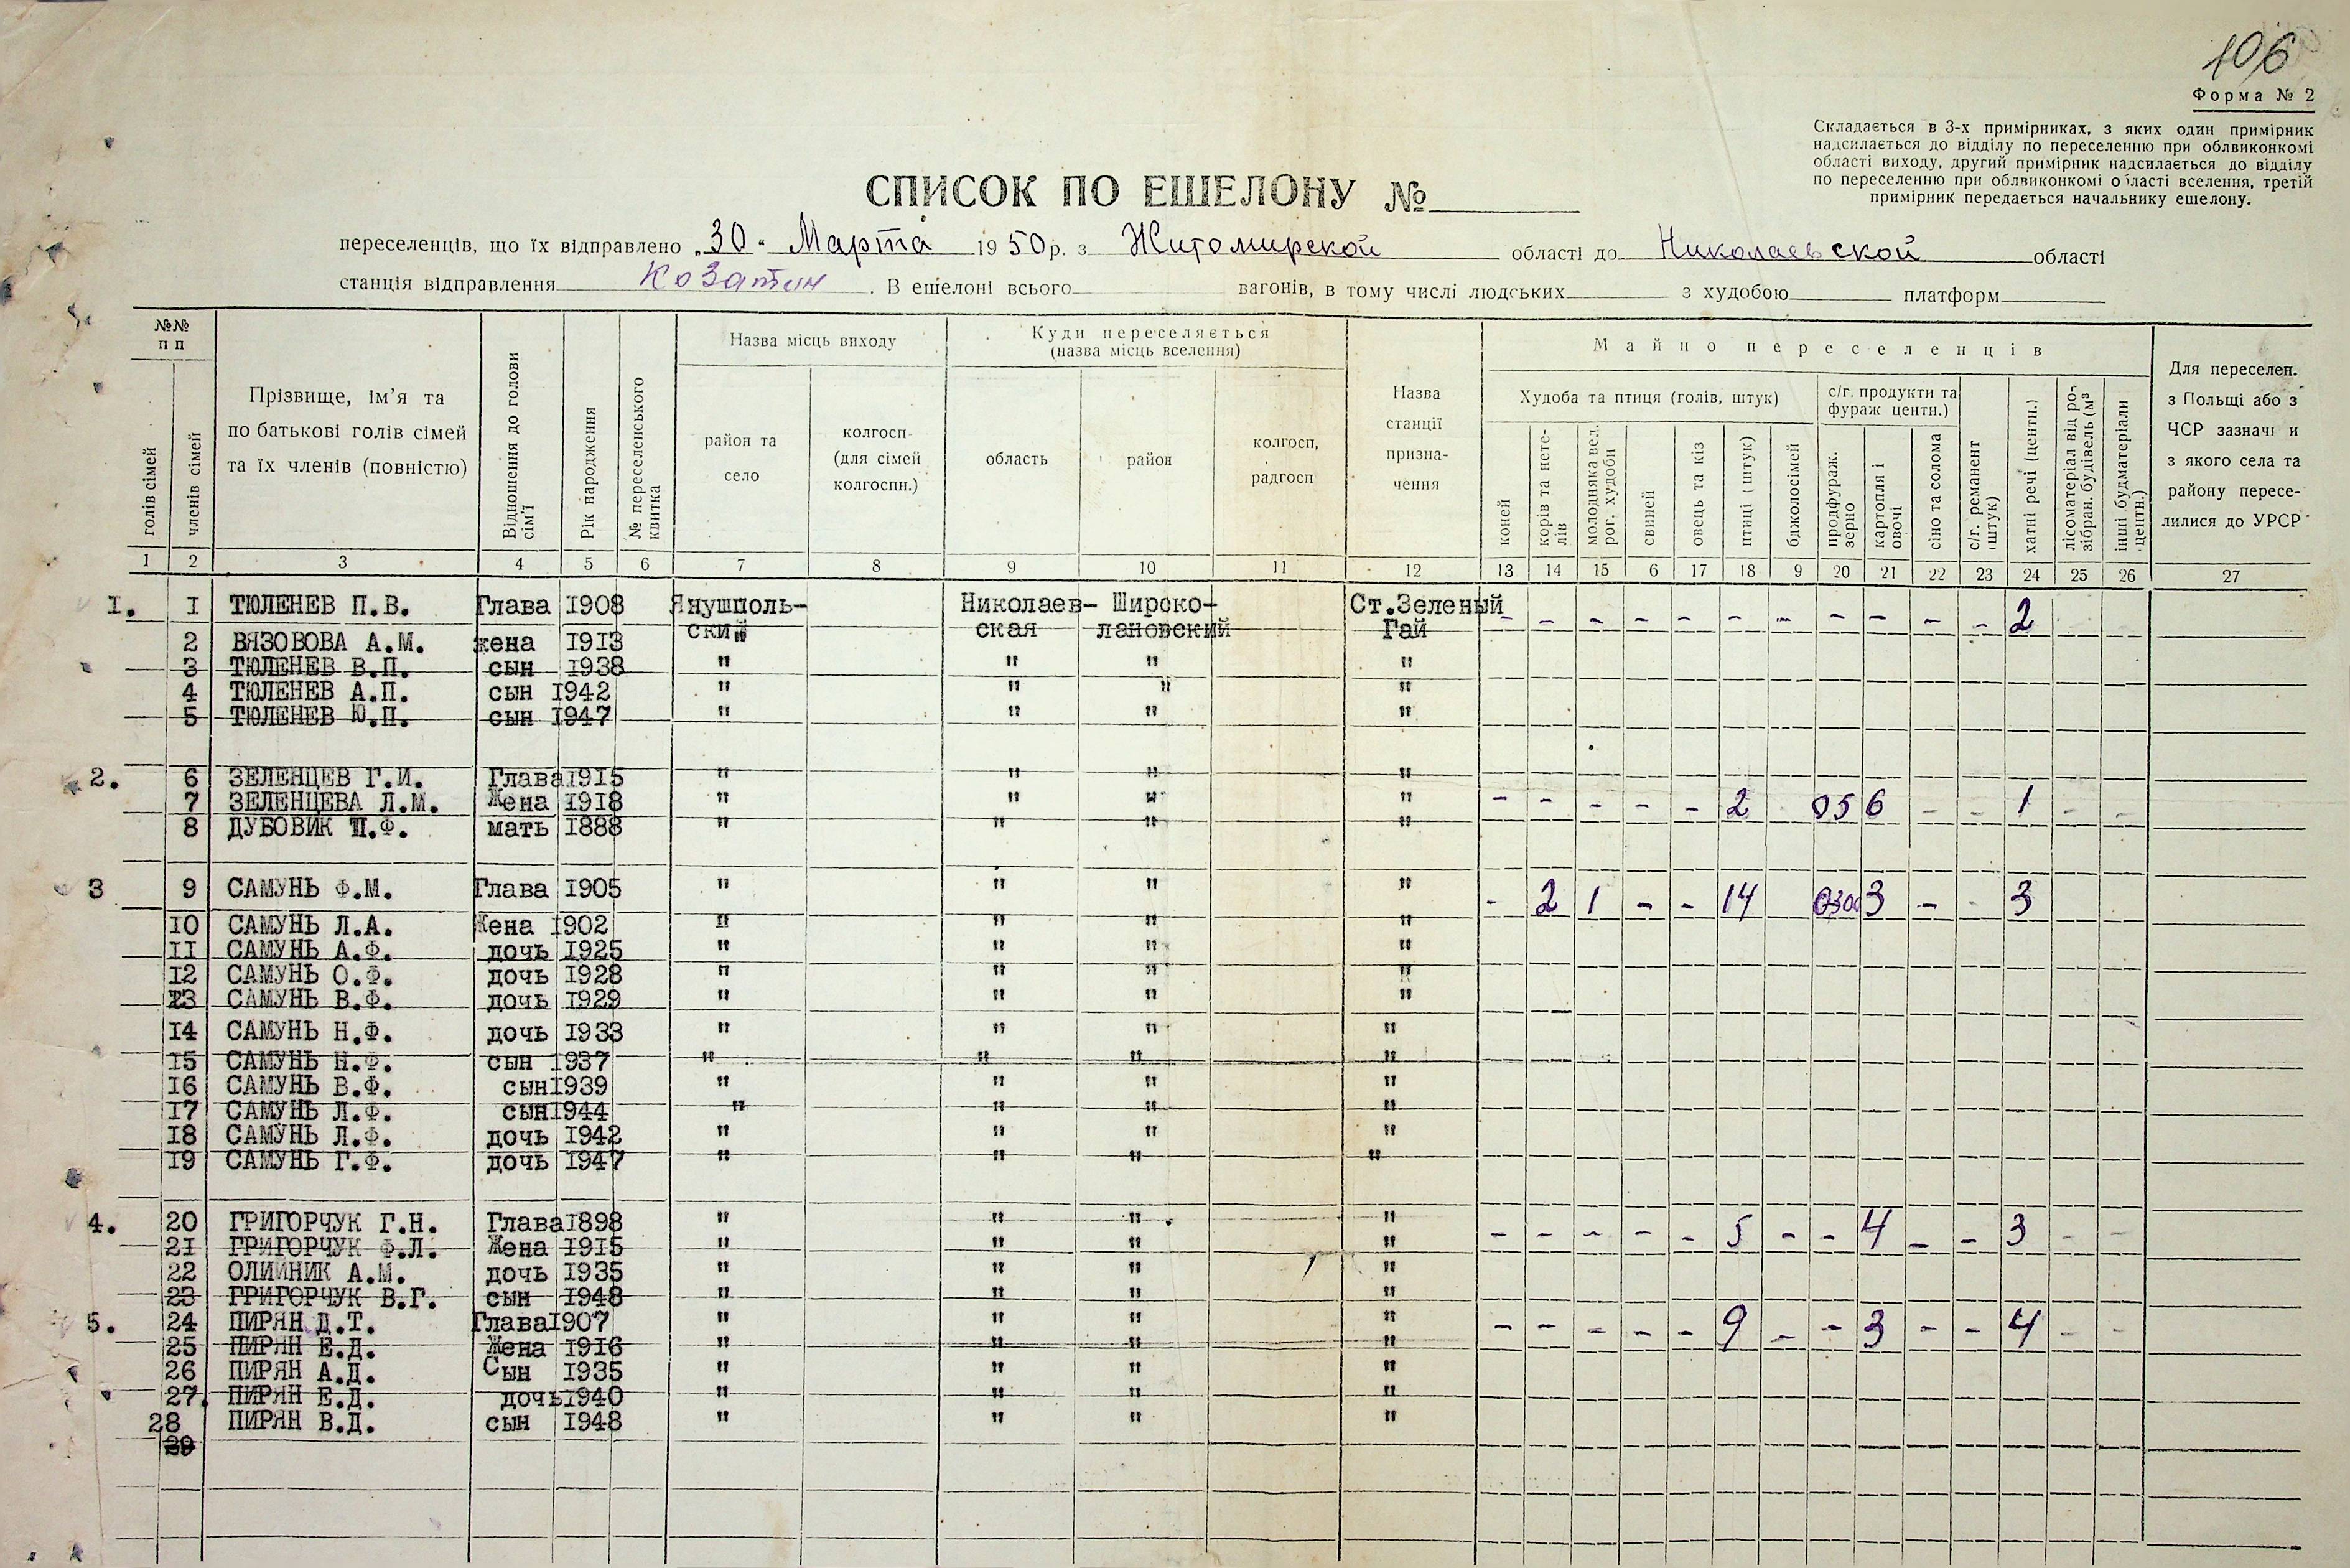 106
Форма № 2
Складається в 3-х примірниках, з яких один примірник
надсилається до відділу по переселенню при облвиконкомі
області виходу, другий примірник надсилається до відділу
по переселенню при облвиконкомі области вселення, третій
примірник передається начальнику ешелону.
СПИСОК ПО ЕШЕЛОНУ №
переселенців, що їх відправлено „30" Марта 1950 р. з Житомирской області до Николаевской області
станція відправлення Козатин. В ешелоні всього вагонів, в тому числі людських з худобою платформ
№№ п п
голів сімей
членів сімей
Прізвище, ім'я та по батькові голів сімей та їх членів (повністю)
Відношення до голови сім'ї
Рік народження
№ переселенського квитка
Назва місць виходу
район та село
колгосп (для сімей колгоспн.)
Куди переселяється (назва місць вселення)
область
район
колгосп, радгосп
Назва станції призначення
Майно переселенців
Худоба та птиця (голів, штук)
коней
корів та нетелів
молодняка вел. рог. худоби
свиней
овець та кіз
птиці (штук)
бджолосімей
с/г. продукти та фураж центн.)
продфураж. зерно
картопля і овочі
сіно та солома
с/г. реманент (штук)
хатні речі (центн.)
лісоматеріал від розібран. будівель (м³
інші будматеріали центн.)
Для переселен. з Польщі або з ЧСР зазначи и з якого села та району переселилися до УРСР
1 2 3 4 5 6 7 8 9 10 11 12 13 14 15 6 17 18 9 20 21 22 23 24 25 26 27
I. I ТЮЛЕНЕВ П.В. Глава I908 Янушполь- Николаев- Широко- Ст.Зеленый - - - - - - - - - - - 2
ский ская лановский Гай
2 ВЯЗОВОВА А.М. жена I913
3 ТЮЛЕНЕВ В.П. сын I938 " " " "
4 ТЮЛЕНЕВ А.П. сын I942 " " " "
5 ТЮЛЕНЕВ Ю.П. сын I947 " " " "
2. 6 ЗЕЛЕНЦЕВ Г.И. Глава I915 " " " "
7 ЗЕЛЕНЦЕВА Л.М. Жена I918 " " " " - - - - - 2 05 6 - - 1 - -
8 ДУБОВИК П.Ф. мать I888 " " " "
3 9 САМУНЬ Ф.М. Глава I905 " " " " - 2 1 - - 14 3 - - 3
I0 САМУНЬ Л.А. Жена I902 " " " "
II САМУНЬ А.Ф. дочь I925 " " " "
I2 САМУНЬ О.Ф. дочь I928 " " " "
I3 САМУНЬ В.Ф. дочь I929 " " " "
I4 САМУНЬ Н.Ф. дочь I933 " " " "
I5 САМУНЬ Н.Ф. сын I937 " " " "
I6 САМУНЬ В.Ф. сын I939 " " " "
I7 САМУНЬ Л.Ф. сын I944 " " " "
I8 САМУНЬ Л.Ф. дочь I942 " " " "
I9 САМУНЬ Г.Ф. дочь I947 " " " "
4. 20 ГРИГОРЧУК Г.Н. Глава I898 " " " " - - - - - 5 - - 4 - - 3 - -
21 ГРИГОРЧУК Ф.Л. Жена I915 " " " "
22 ОЛИЙНИК А.М. дочь I935 " " " "
23 ГРИГОРЧУК В.Г. сын I948 " " " "
5. 24 ПИРЯН Д.Т. Глава I907 " " " " - - - - - 9 - - 3 - - 4 - -
25 ПИРЯН Е.Д. Жена I916 " " " "
26 ПИРЯН А.Д. Сын I935 " " " "
27. ПИРЯН Е.Д. дочь I940 " " " "
28 ПИРЯН В.Д. сын I948 " " " "
29